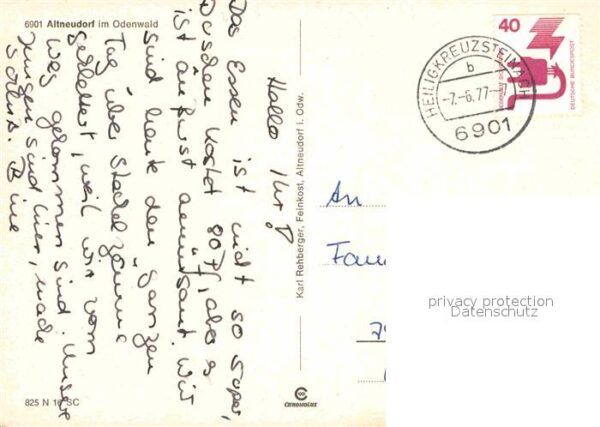 6901 Altneudorf im Odenwald
Hallo Ihr!
Das Essen ist nicht so super,
Duschen kostet 80 Pf, aber es
ist äußerst amüsant. Wir
sind heute den ganzen
Tag über Stachelzäune
geklettert, weil wir vom
Weg gekommen sind. Unsere
Jungen sind
Bine
825 N 16 SC
Karl Rehberger, Feinkost, Altneudorf i. Odw.
CEKOMBINE
40
DEUTSCHE BUNDESPOST
HEILIGKREUZSTEINACH
b
-7.-6.77--7
6901
An
Fam
privacy protection
Datenschutz